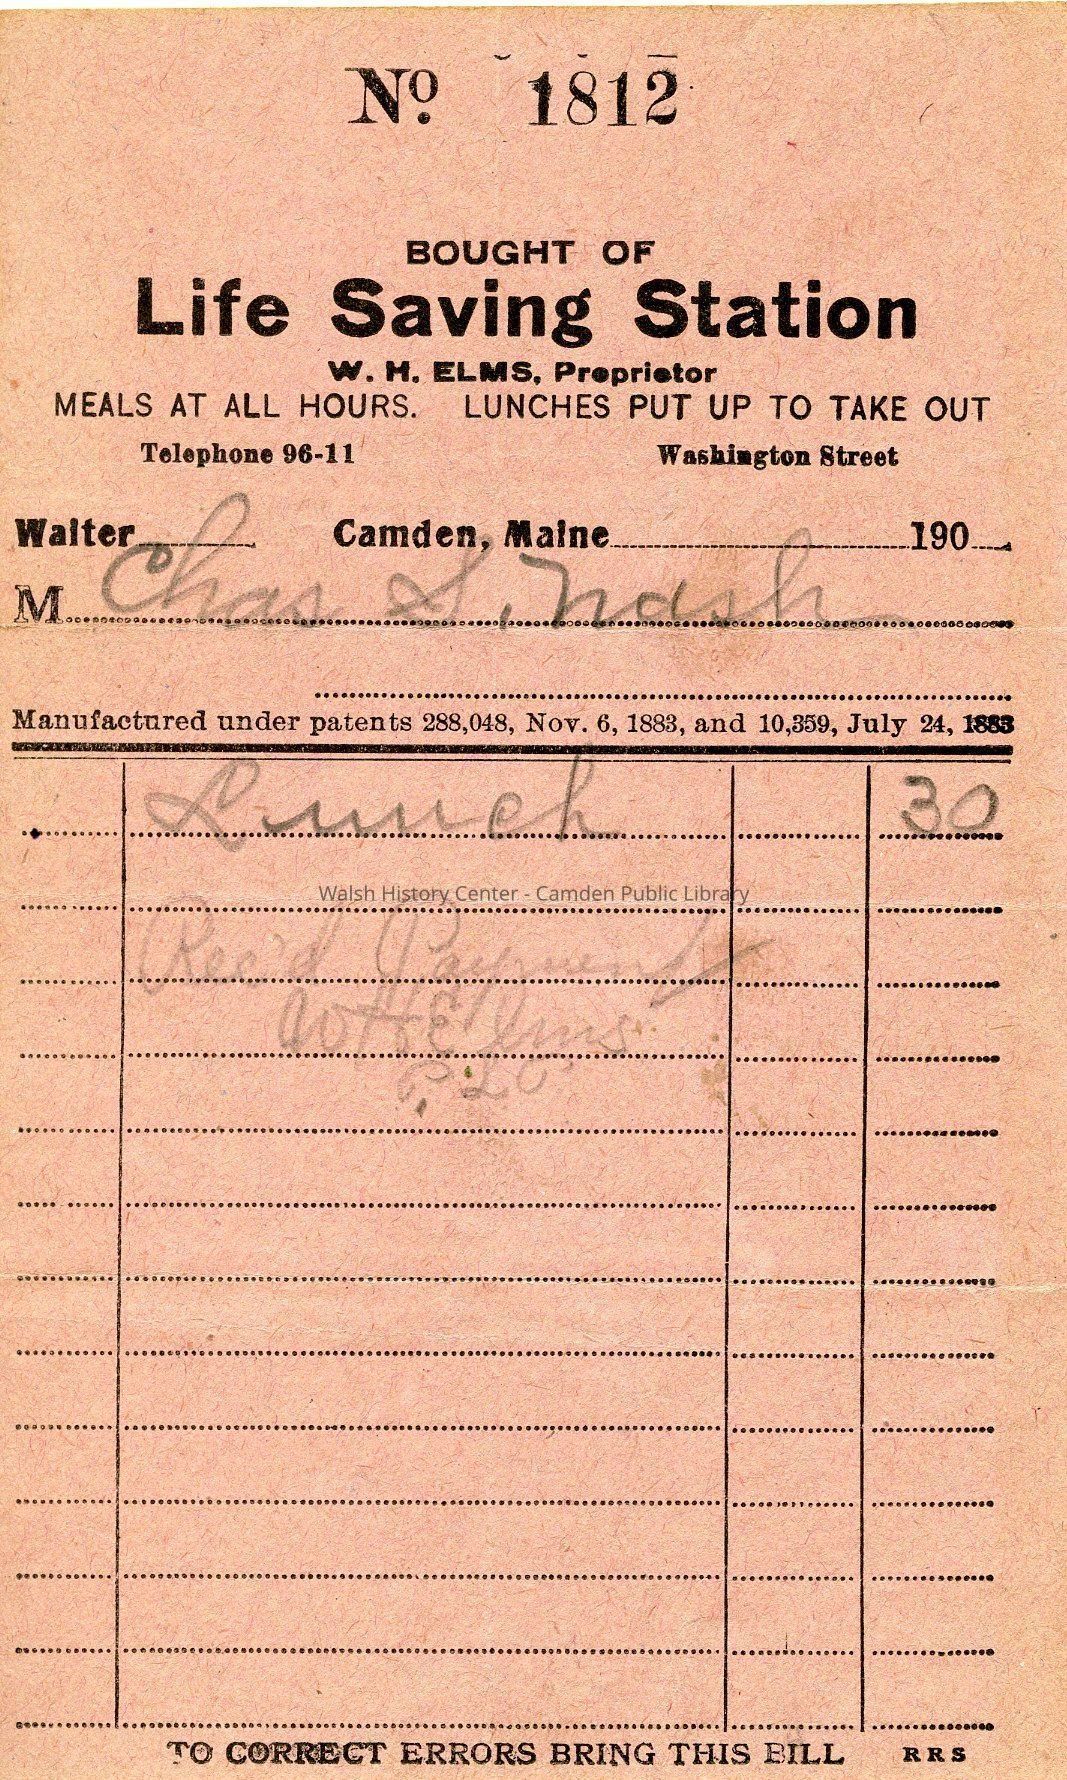 No. 1812
BOUGHT OF
Life Saving Station
W. H. ELMS, Proprietor
MEALS AT ALL HOURS. LUNCHES PUT UP TO TAKE OUT
Telephone 96-11 Washington Street
Waiter Camden, Maine 190
M Chas S. Nash
Manufactured under patents 288,048, Nov. 6, 1883, and 10,359, July 24, 1883
Lunch 30
Walsh History Center - Camden Public Library
Rec'd Payment
WHElms
TO CORRECT ERRORS BRING THIS BILL RRS